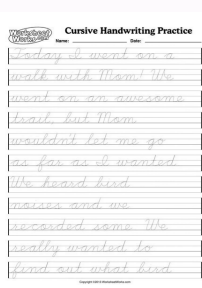 Worksheet Works.com
Cursive Handwriting Practice
Name: Date:
Today I went on a
walk with Mom! We
went on an awesome
trail, but Mom
wouldn't let me go
as far as I wanted.
We heard bird
noises and we
recorded some. We
really wanted to
find out what bird